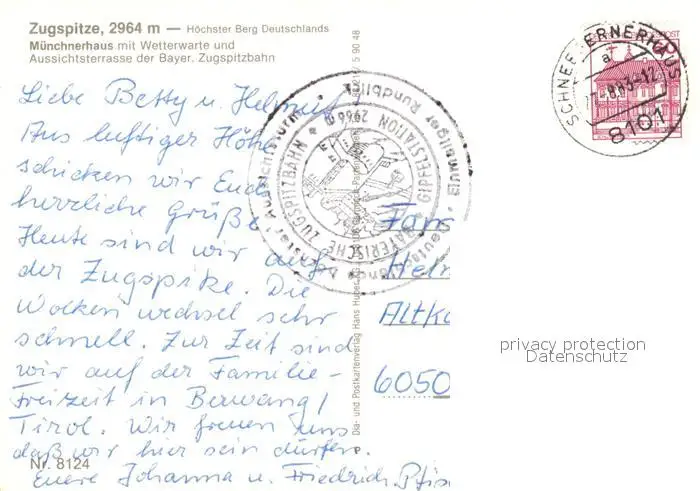 Zugspitze, 2964 m — Höchster Berg Deutschlands
Münchnerhaus mit Wetterwarte und
Aussichtsterrasse der Bayer. Zugspitzbahn
Liebe Betty u. Helmut
Aus luftiger Höhe
schicken wir Euch
herzliche Grüße
Heute sind wir auf
der Zugspitze. Die
Wolken wechsel sehr
schnell. Zur Zeit sind
wir auf der Familie-
Freizeit in Berwang/
Tirol. Wir freuen uns
daß wir hier sein dürfen.
Eure Johanna u. Friedrich Pfis
Nr. 8124
BAYERISCHE ZUGSPITZBAHN
GIPFELSTATION 2966 m
Dia- und Postkartenverlag Hans Huber
SCHNEEFERNERHAUS
a
8101
POST
Fam
Helm
Altk
6050
privacy protection
Datenschutz